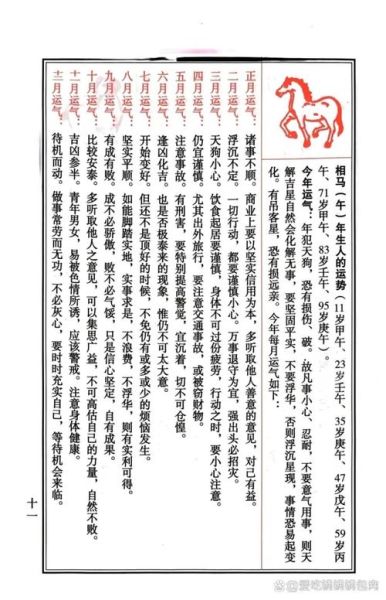 相马（午）年生人的运势（11岁甲午、23岁壬午、35岁庚午、47岁戊午、59岁丙
午、71岁甲午、83岁壬午、95岁庚午）。
今年运气：年犯天狗，恐有损伤、破。故凡事小心、忍耐，不要意气用事，则天
解吉星自然会化解无事，要坚固平实，不要浮华，否则浮沉星现，事情恐易起变
化。有吊客星，恐有损远亲。今年每月运气如下：
正月运气：诸事不顺。商业上要以坚实信用为本，多听取他人善意的意见，对己有益。
二月运气：浮沉不定。一切行动，都要谨慎小心。万事退守为宜，强出头必招灾。
三月运气：天狗小心。饮食起居要谨慎，身体不可过份疲劳，行动之时，要小心注意。
四月运气：仍宜谨慎。尤其出外旅行，要注意交通事故，或被窃财物。
五月运气：注意事故。有刑害，要特别提高警觉，宜沉着，切不可仓惶。
六月运气：逢凶化吉。也是否极泰来的现象，惟仍不可太大意。
七月运气：开始变好。但还不是顶好的时候，不免仍有或多或少的烦恼发生。
八月运气：坚实平顺。如能脚踏实地，实事求是，不浪费，不浮华，则有实利可得。
九月运气：有成有败。成不必骄傲，败不必气馁，只是信心坚定，自有成果。
十月运气：比较安泰。多听取他人之意见，可以集思广益，不可高估自己的力量，自然不败。
十一月运气：吉凶参半。青年男女，易被色情所诱，应该警戒。注意身体健康。
十二月运气：待机而动。做事常劳而无功，不必灰心，要时时充实自己，等待机会来临。
十一
@爱吃锅锅锅包肉